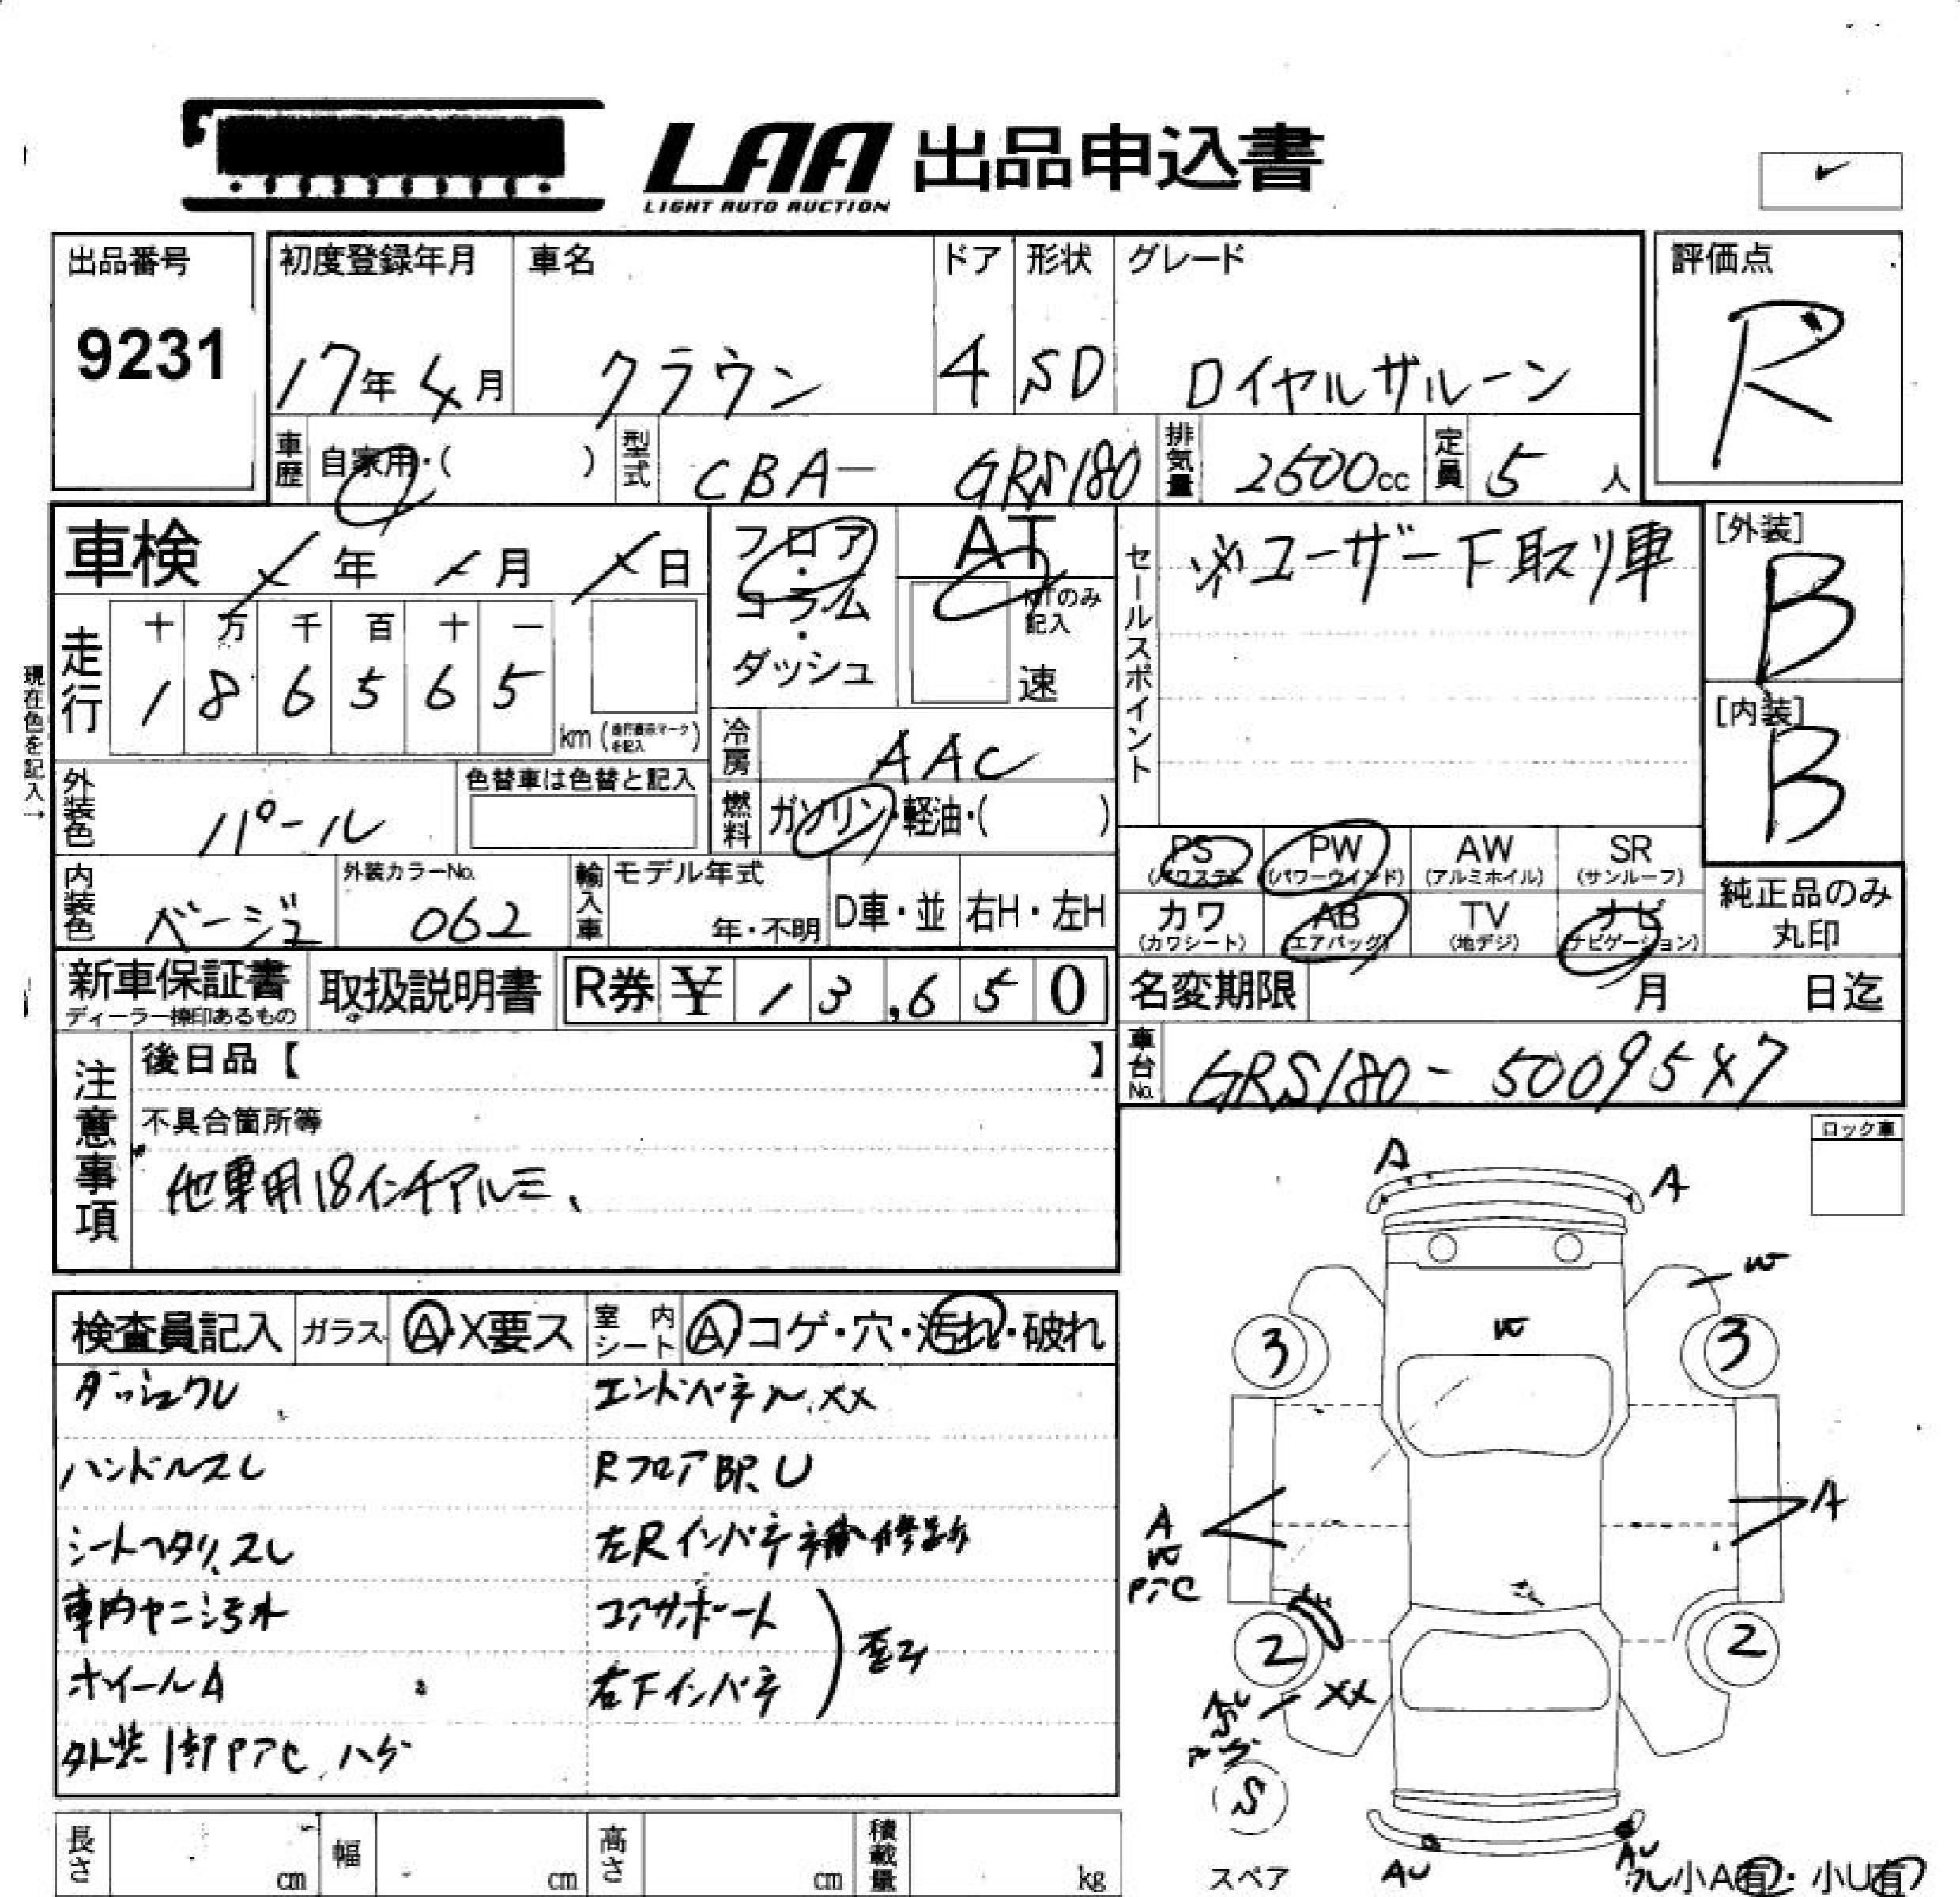 LAA 出品申込書
LIGHT AUTO AUCTION
出品番号
9231
初度登録年月
17年4月
車名
クラウン
ドア
4
形状
SD
グレード
ロイヤルサルーン
評価点
R
車歴
自家用・( )
型式
CBA- GRS180
排気量
2500cc
定員
5人
車検
年 月 日
フロア・コラム・ダッシュ
AT
MTのみ記入
速
セールスポイント
※ユーザー下取り車
[外装]
B
[内装]
B
現在色を記入→
走行
十 万 千 百 十 一
1 8 6 5 6 5
km (走行表示マークを記入)
冷房
AAC
燃料
ガソリン・軽油・( )
外装色
パール
色替車は色替と記入
内装色
ベージュ
外装カラーNo.
062
輸入車
モデル年式
年・不明
D車・並
右H・左H
PS
(パワステ)
PW
(パワーウインド)
AW
(アルミホイル)
SR
(サンルーフ)
カワ
(カワシート)
AB
(エアバッグ)
TV
(地デジ)
ナビ
(ナビゲーション)
純正品のみ
丸印
新車保証書
ディーラー捺印あるもの
取扱説明書
R券 ¥ 13,650
名変期限
月 日迄
車台No.
GRS180-50095X7
注意事項
後日品【 】
不具合箇所等
他車用18インチアルミ、
ロック車
検査員記入
ガラス
A・X要ス
室内シート
A・コゲ・穴・汚れ・破れ
ダッシュワレ
エンドパネル XX
ハンドルスレ
Rフロア BP.U
シートヘタリ、スレ
左Rインパネ補修跡
車内ヤニ汚れ
コアサポート
右下インパネ
ホイールA
外装 ハゲ
A
A
W
W
3
3
A
W
A
2
2
XX
S
スペア
AU
AU
小A有・小U有
長さ
cm
幅
cm
高さ
cm
積載量
kg